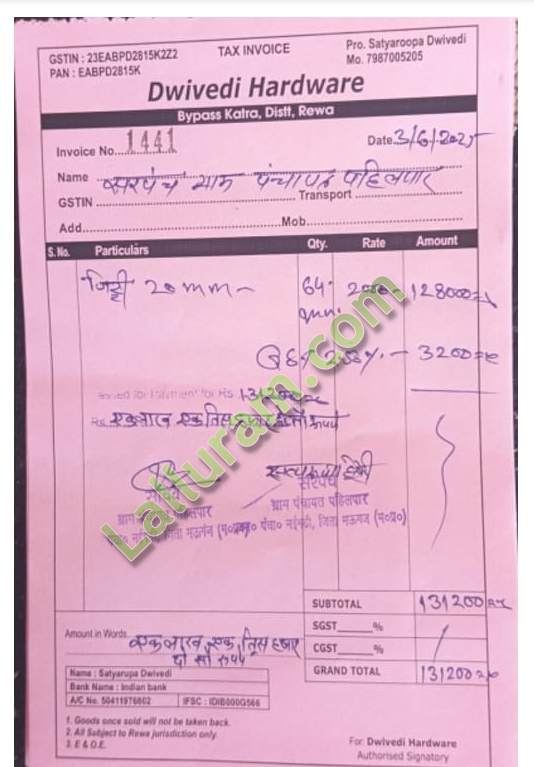 GSTIN : 23EABPD2815K2Z2 TAX INVOICE Pro. Satyaroopa Dwivedi
PAN : EABPD2815K Mo. 7987005205
Dwivedi Hardware
Bypass Katra, Distt, Rewa
Invoice No. 1441 Date 3/6/2025
Name सरपंच ग्राम पंचायत पहिलपार
GSTIN Transport
Add. Mob.
S.No. Particulars Qty. Rate Amount
गिट्टी 20 mm - 64 2000 - 128000=
3200=
Payment for Rs 131200
Rs. एक लाख एक तिस हजार रुपये
सरपंच
ग्राम पंचायत पहिलपार
जिला मऊगंज (म०प्र०) पंचा० नईगढ़ी, जिला मऊगंज (म०प्र०)
SUBTOTAL 131200
SGST %
CGST %
Amount in Words एक लाख एक तिस हजार
दो सौ रुपये
GRAND TOTAL 131200
Name : Satyarupa Dwivedi
Bank Name : Indian bank
A/C No. 50411976602 IFSC : IDIB000G566
1. Goods once sold will not be taken back.
2. All Subject to Rewa jurisdiction only
3. E & O.E.
For: Dwivedi Hardware
Authorised Signatory
Lalluram.com